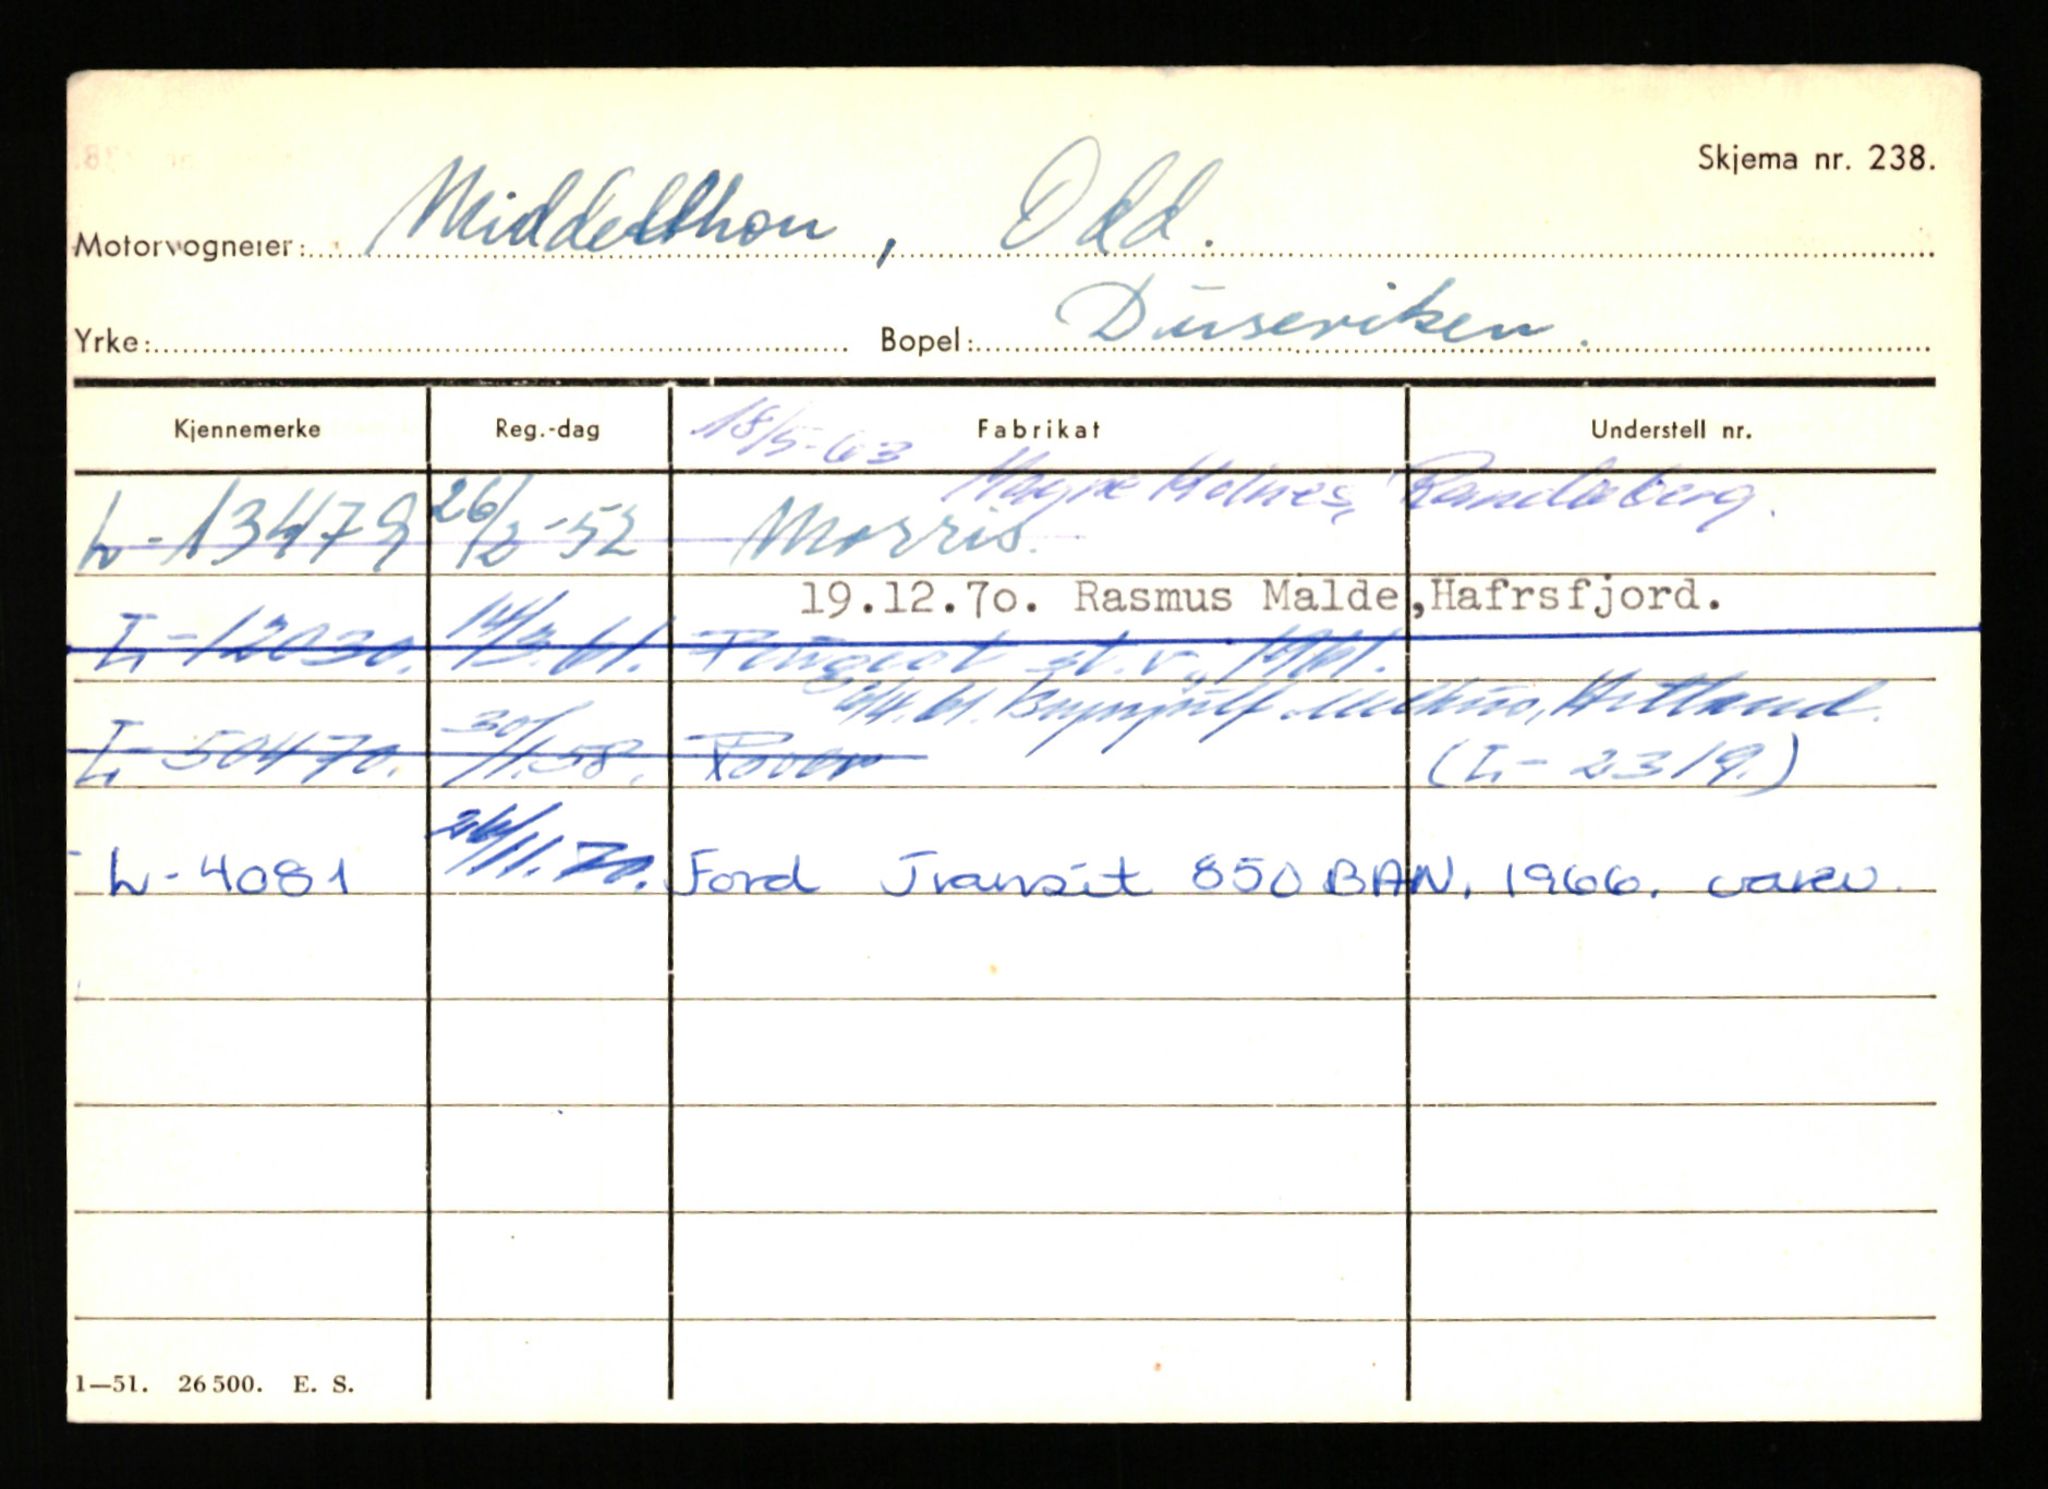 Skjema nr. 238.
Motorvogneier: Middelthon, Odd.
Yrke: Bopel: Duseviken.
Kjennemerke Reg.-dag Fabrikat Understell nr.
18/5-63 Magne Holnes, Randaberg.
L-13479 26/2-52 Morris.
19.12.70. Rasmus Malde, Hafrsfjord.
L-12030. 14/3.61. Peugeot st.v., 1961.
/4.61. Brynjulf Hetland.
L-50470. 30/1.58. Rover (L-2319.)
L-4081 26/11.70. Ford Transit 850 BAN. 1966. varev.
1—51. 26 500. E. S.